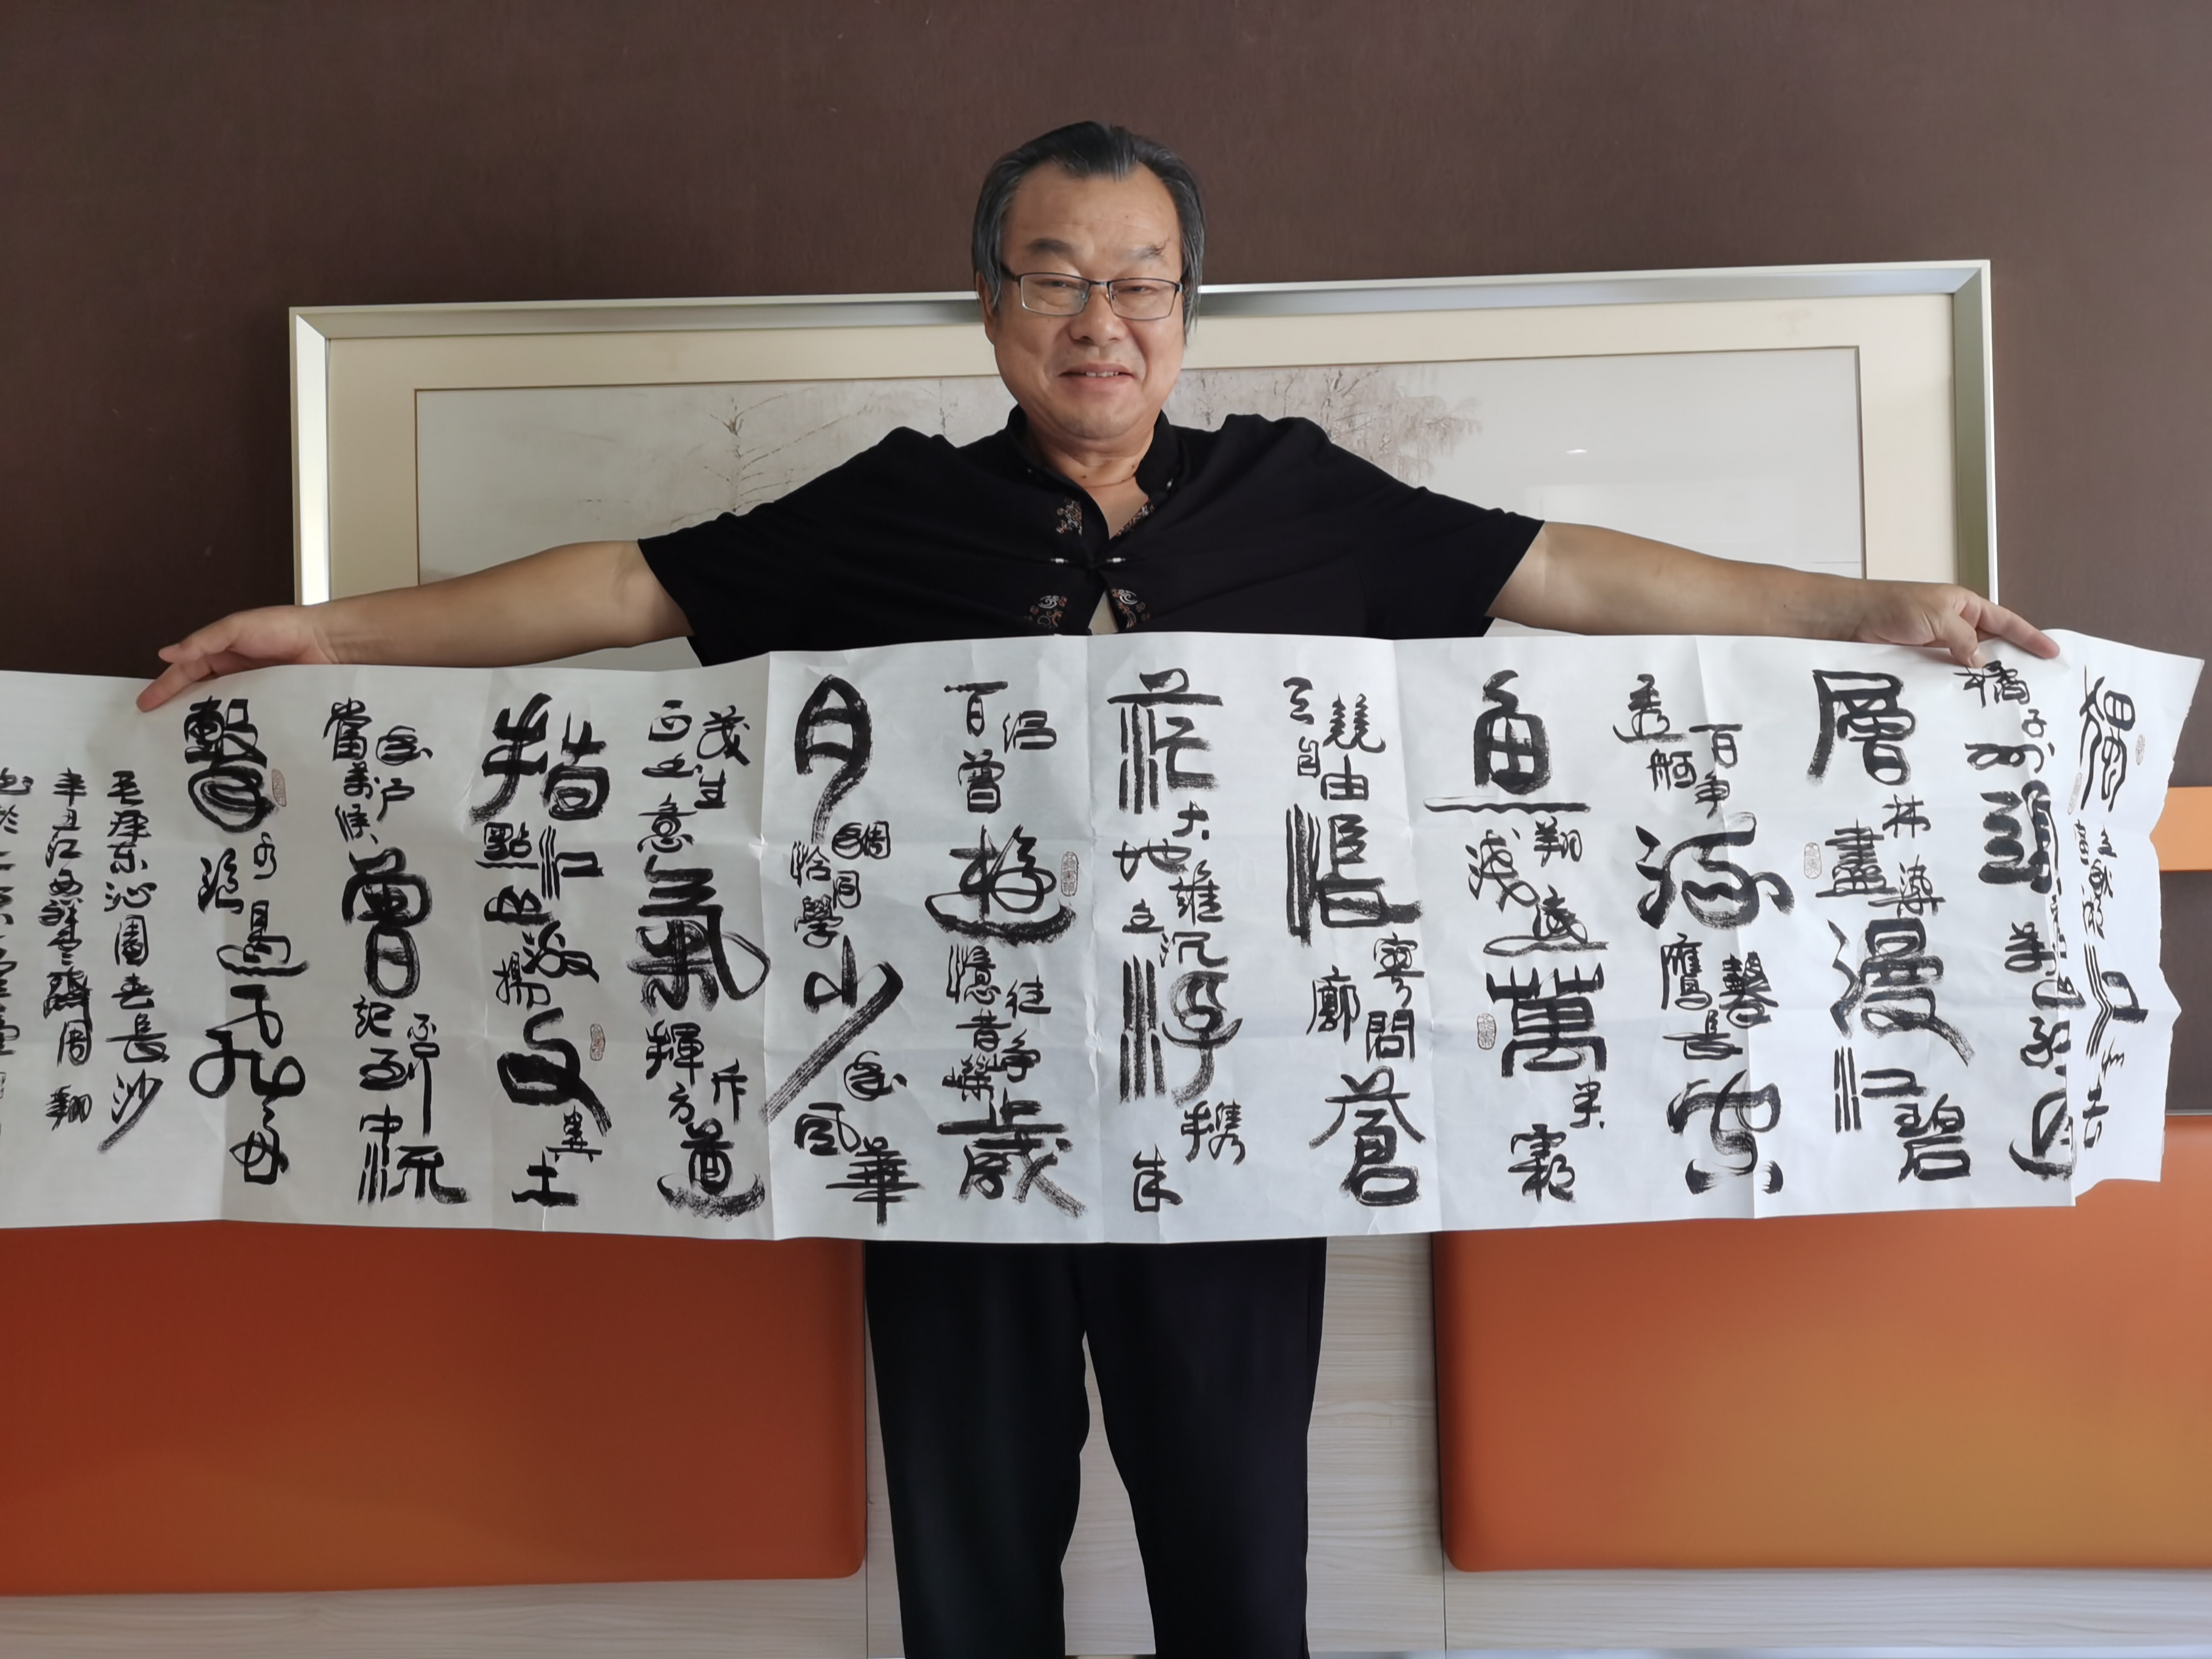 獨立寒秋湘江北去
橘子洲頭看萬山紅遍
層林盡染漫江碧
透百舸争流鷹擊長空
魚翔淺底萬類霜
天競自由悵寥廓問蒼
茫大地誰主沉浮携來
百侣曾遊憶往昔崢嶸歲
月稠恰同學少年風華
正茂書生意氣揮斥方遒
指點江山激揚文字糞土
當年萬户侯曾記否到中流
擊水浪遏飛舟
毛澤東沁園春長沙
辛丑江西周翔